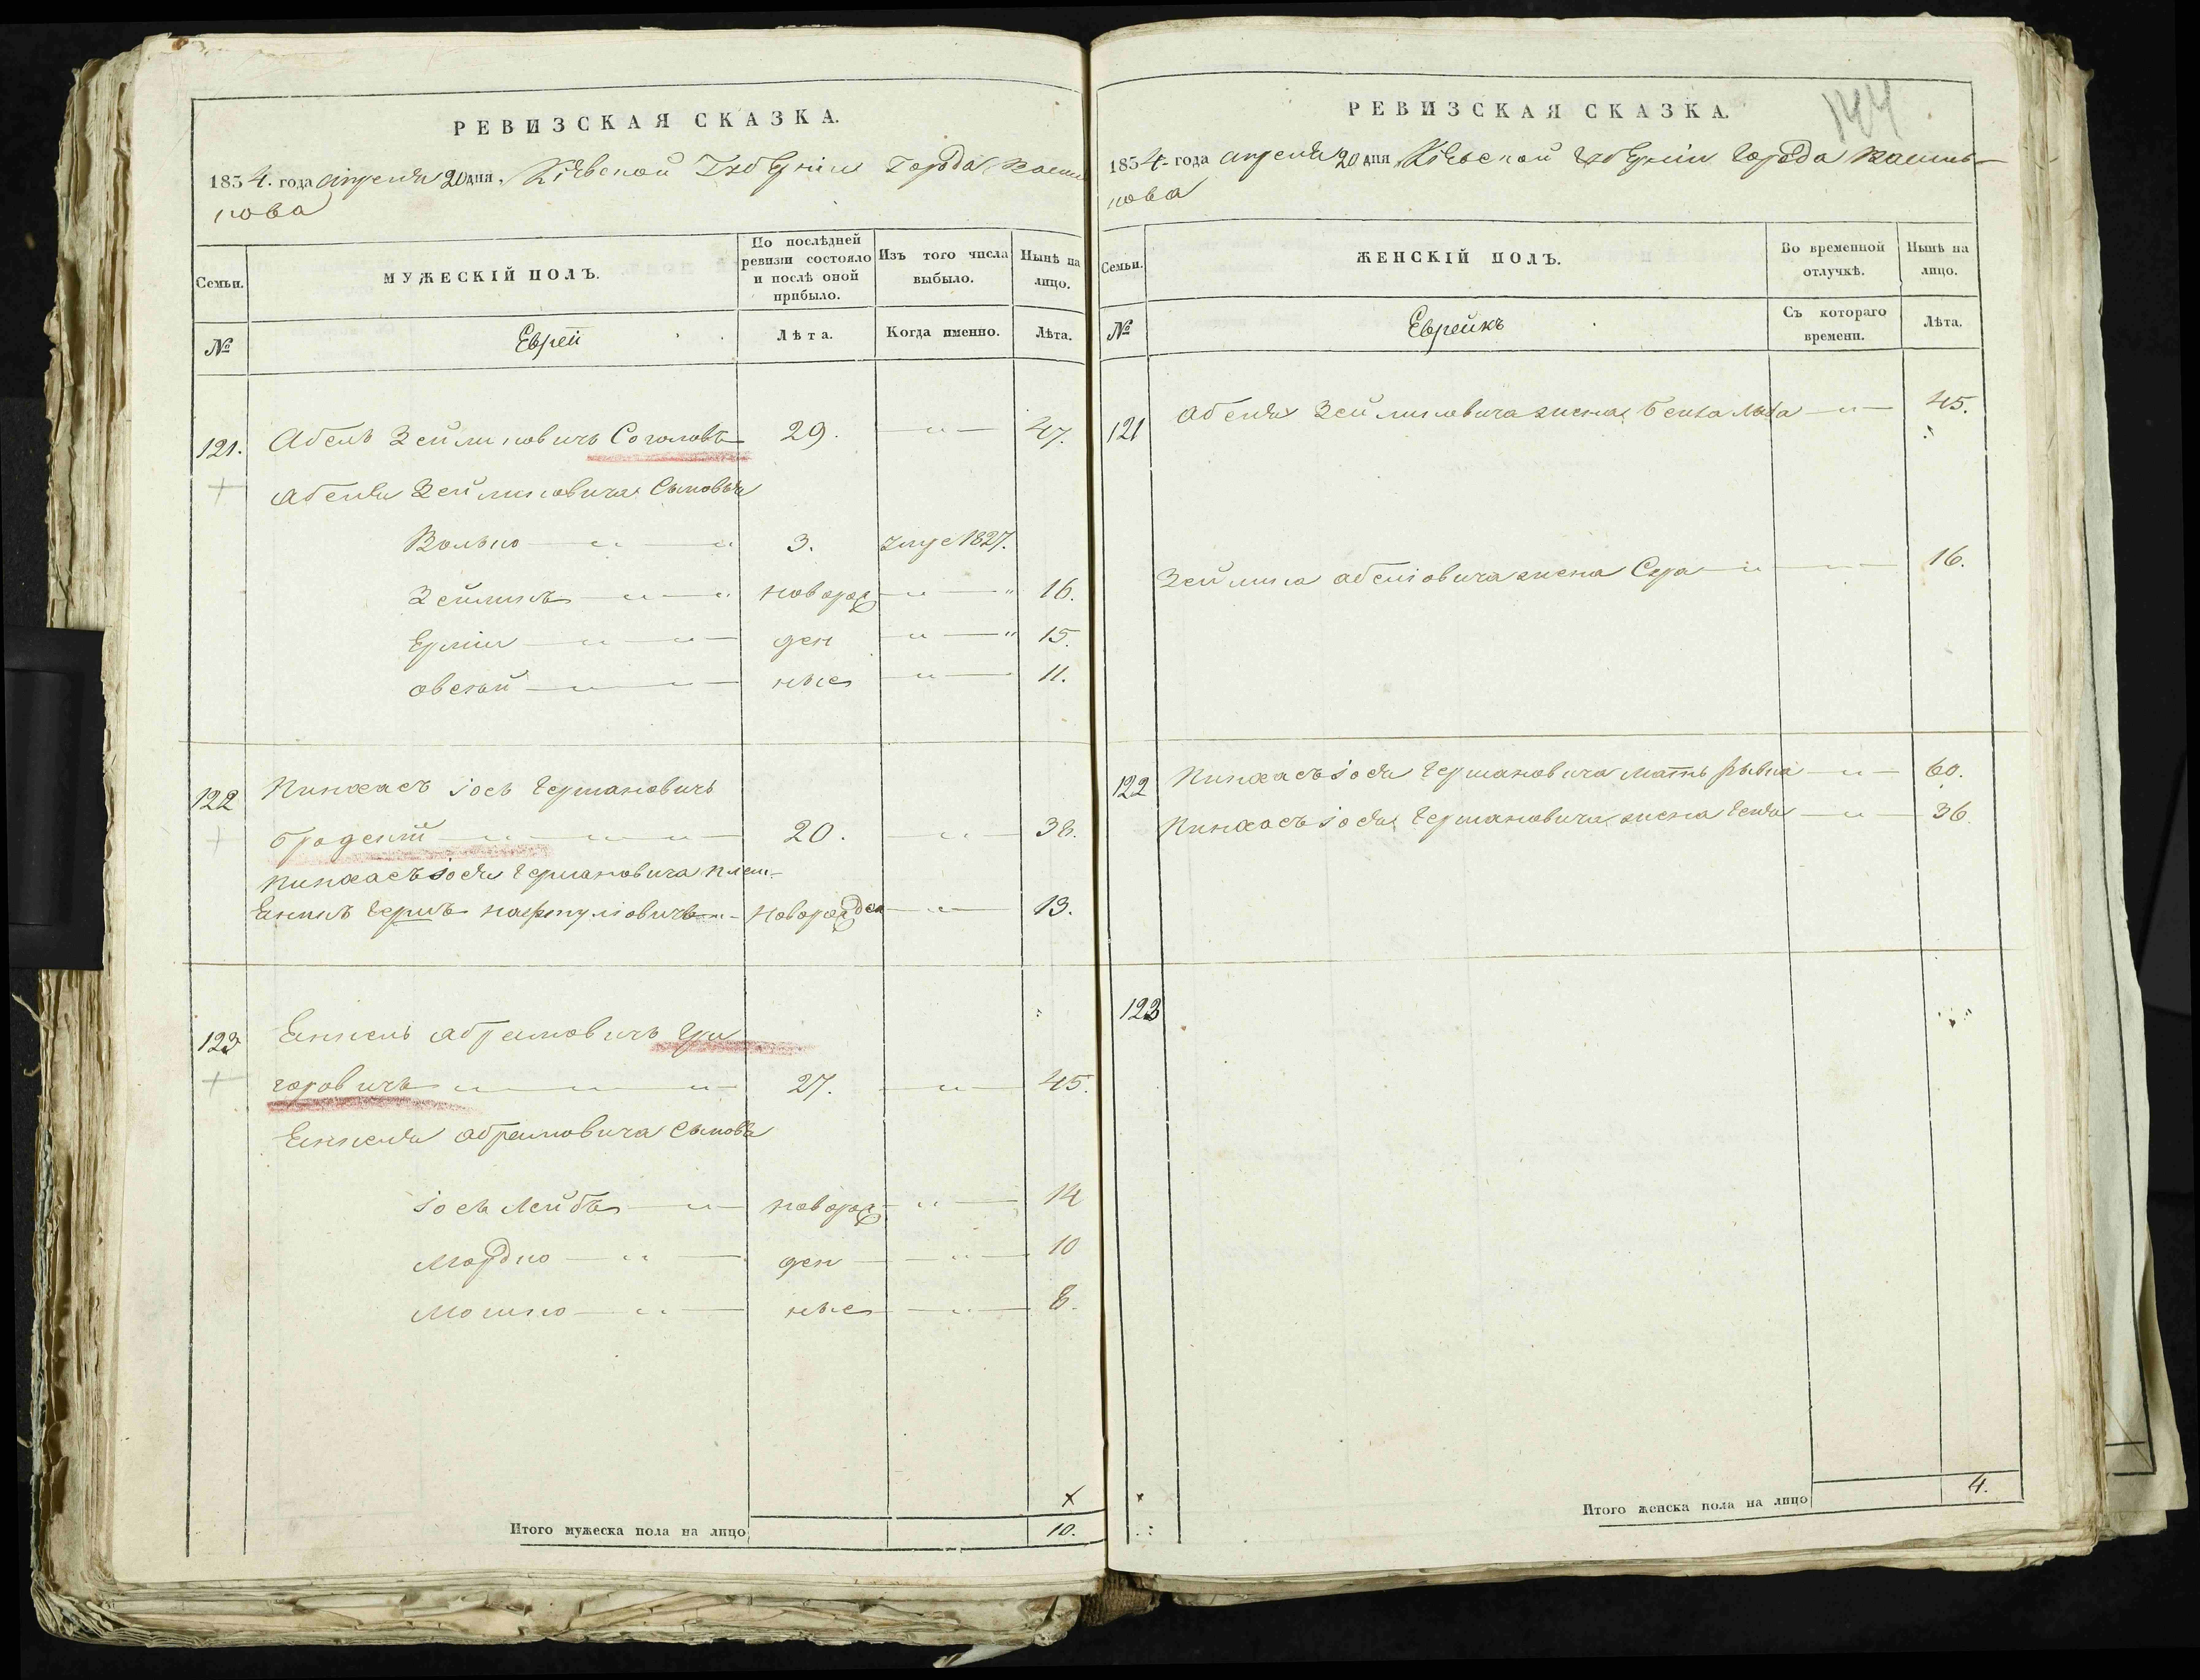 РЕВИЗСКАЯ СКАЗКА.
1854. года апреля 20 дня, Кіевской Губерніи Города Василь
кова
Семьи.
МУЖЕСКІЙ ПОЛЪ.
По послѣдней ревизіи состояло и послѣ оной прибыло.
Изъ того числа выбыло.
Нынѣ на лицо.
№
Еврей
Лѣта.
Когда именно.
Лѣта.
121. Абель Зейликовичъ Соголовъ 29. —"— 47.
Абеля Зейликовича Сыновья
Волько —"—"— 3. 1827.
Зейликъ —"—" новорож —"—" 16.
—"—"— ден —"—" 15.
Овсій —"—"— ные —"— 11.
122 Пинхасъ Іось Германовичъ
—"—"—"— 20. —"— 38.
Пинхасъ Іося Германовича плем-
Гершъ Нафтуловичъ —"— Новорожден —"— 13.
123 Янкель Абрамовичъ Гри
горовичъ —"—"—"— 27. —"— 45.
Янкеля Абрамовича Сыновья
Іось Лейбъ —"— новорож —"— 14
Мордко —"— ден —"— 10
Мошко —"— ные —"— 8.
х
Итого мужеска пола на лицо 10.
РЕВИЗСКАЯ СКАЗКА.
144
1854- года апреля 20 дня, Кіевской Губерніи Города Василь-
кова
Семьи.
ЖЕНСКІЙ ПОЛЪ.
Во временной отлучкѣ.
Нынѣ на лицо.
№
Еврейкъ
Съ котораго времени.
Лѣта.
121 Абеля Зейликовича жена —"— 45.
Зейлика Абеліовича жена Сура —"— — 16.
122 Пинхасъ Іося Германовича мать Рывка —"— 60.
Пинхасъ Іося Германовича жена Геня —"— 36.
123
Итого женска пола на лицо 4.